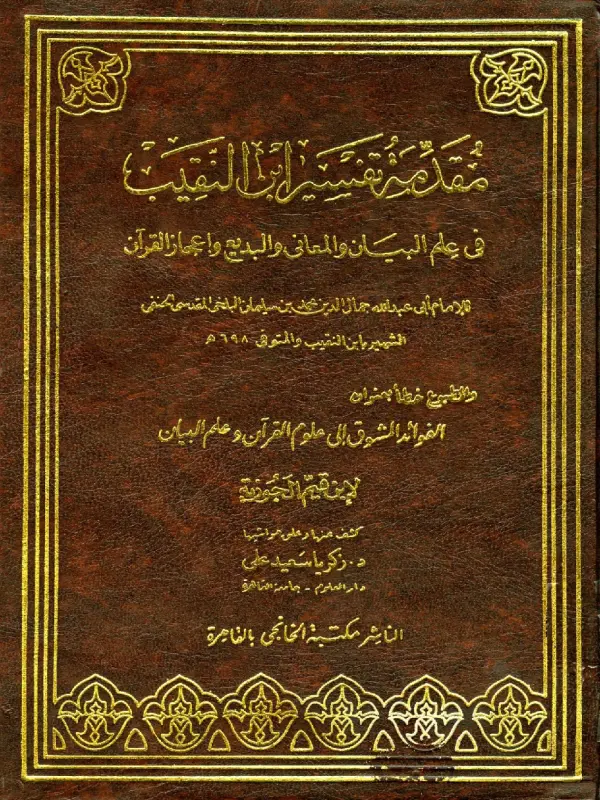 مُقَدِّمَةُ تَفْسِير ابن النَّقِيب
فى علم البيان والمعانى والبديع وإعجاز القرآن
للإمام أبى عبدالله جمال الدين محمد بن سليمان البلخى المقدسى الحنفى
الشهير بابن النقيب والمتوفى ٦٩٨ هـ
والمطبوع خطأ بعنوان
الفوائد المشوق إلى علوم القرآن وعلم البيان
لابن قيم الجوزية
كشف عنها وعلق حواشيها
د. زكريا سعيد على
دار العلوم - جامعة القاهرة
الناشر مكتبة الخانجى بالقاهرة